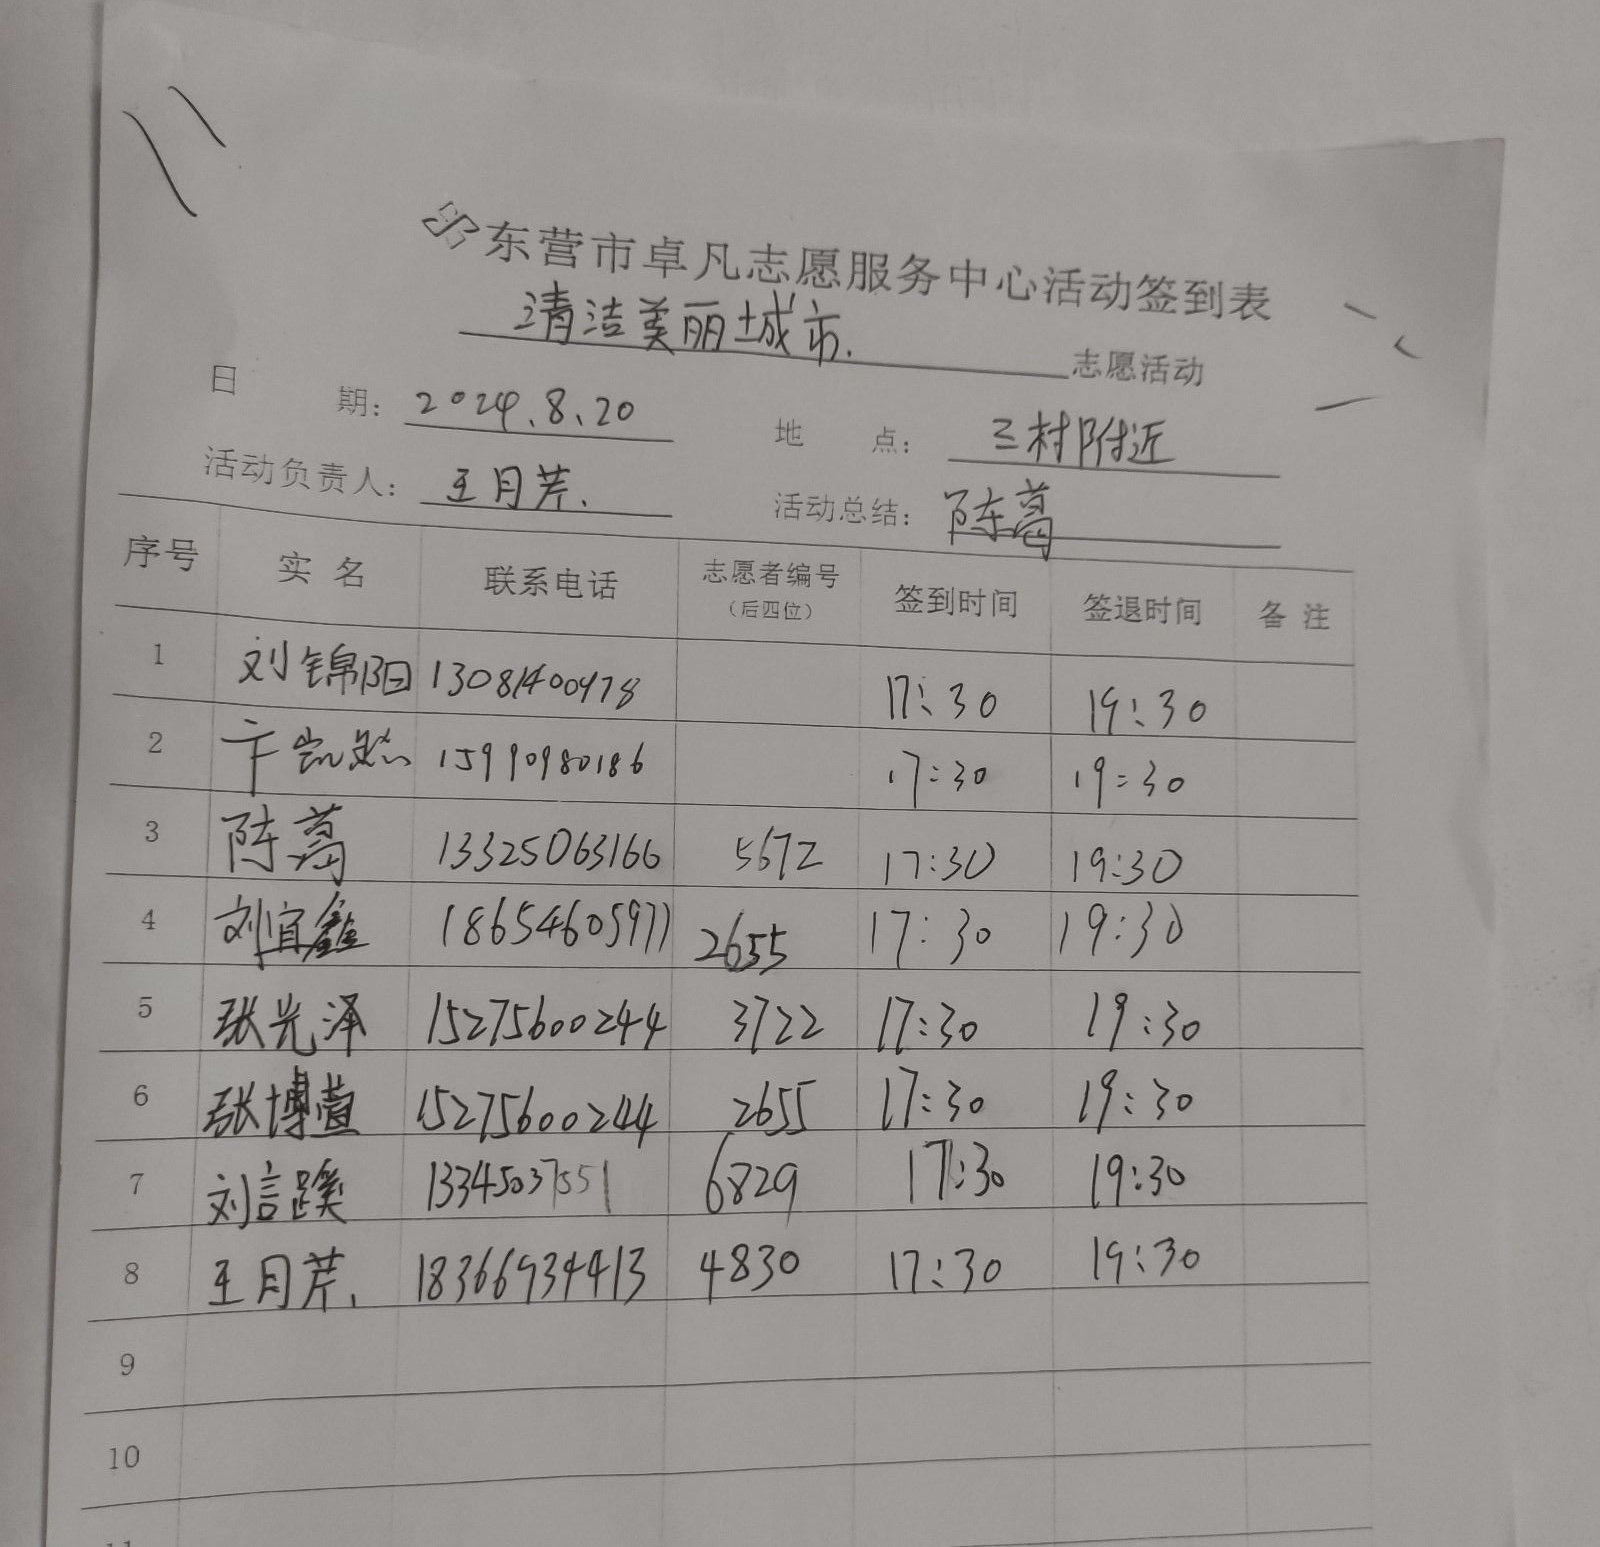 东营市卓凡志愿服务中心活动签到表
清洁美丽城市. 志愿活动
日 期: 2024.8.20 地 点: 三村附近
活动负责人: 王月芹. 活动总结: 陈葛
序号 实 名 联系电话 志愿者编号 (后四位) 签到时间 签退时间 备 注
1 刘锦阳 13081400478 17:30 19:30
2 15990980186 17:30 19:30
3 陈葛 13325063166 5672 17:30 19:30
4 刘宜鑫 18654605977 2655 17:30 19:30
5 张光泽 15275600244 3722 17:30 19:30
6 张博萱 15275600244 2655 17:30 19:30
7 刘言蹊 13345037551 6829 17:30 19:30
8 王月芹. 18366934413 4830 17:30 19:30
9
10